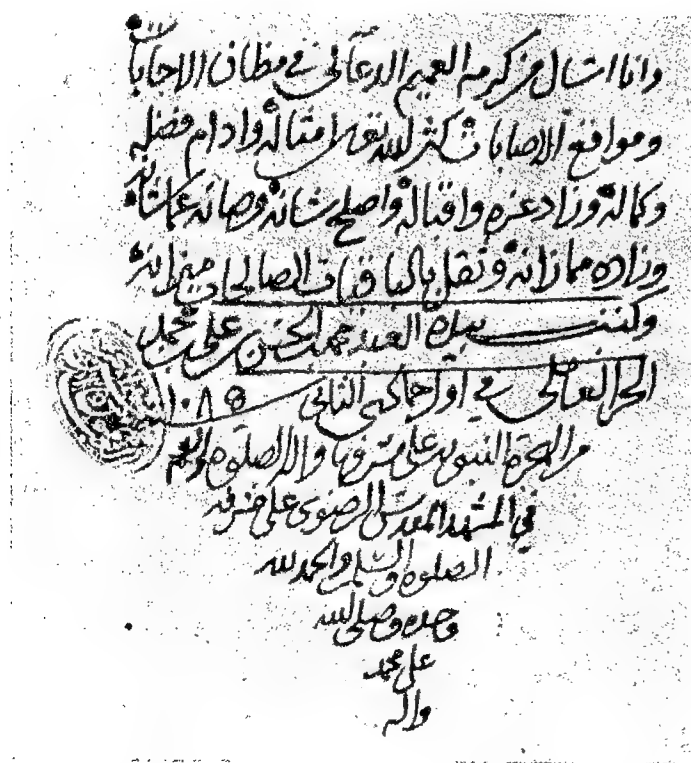 وانا اسال من كرمه العميم الدعآء لي في مظان الاجابات
ومواقع الاصابات كثر الله تعالى امثاله وادام فضله
وكماله وزاد عزه واقباله واصلح شانه وصانه عما شانه
وزاده مما زانه وثقل بالباقيات الصالحات ميزانه
وكتب بيده العبد محمد بن الحسن بن علي بن محمد
الحر العاملي في اول جمادى الثاني ١٠٨٥
من الهجرة النبويه على مشرفها واله الصلوه والسلم
في المشهد المقدس الرضوي على مشرفه
الصلوه والسلم والحمد لله
وحده وصلى الله
على محمد
واله